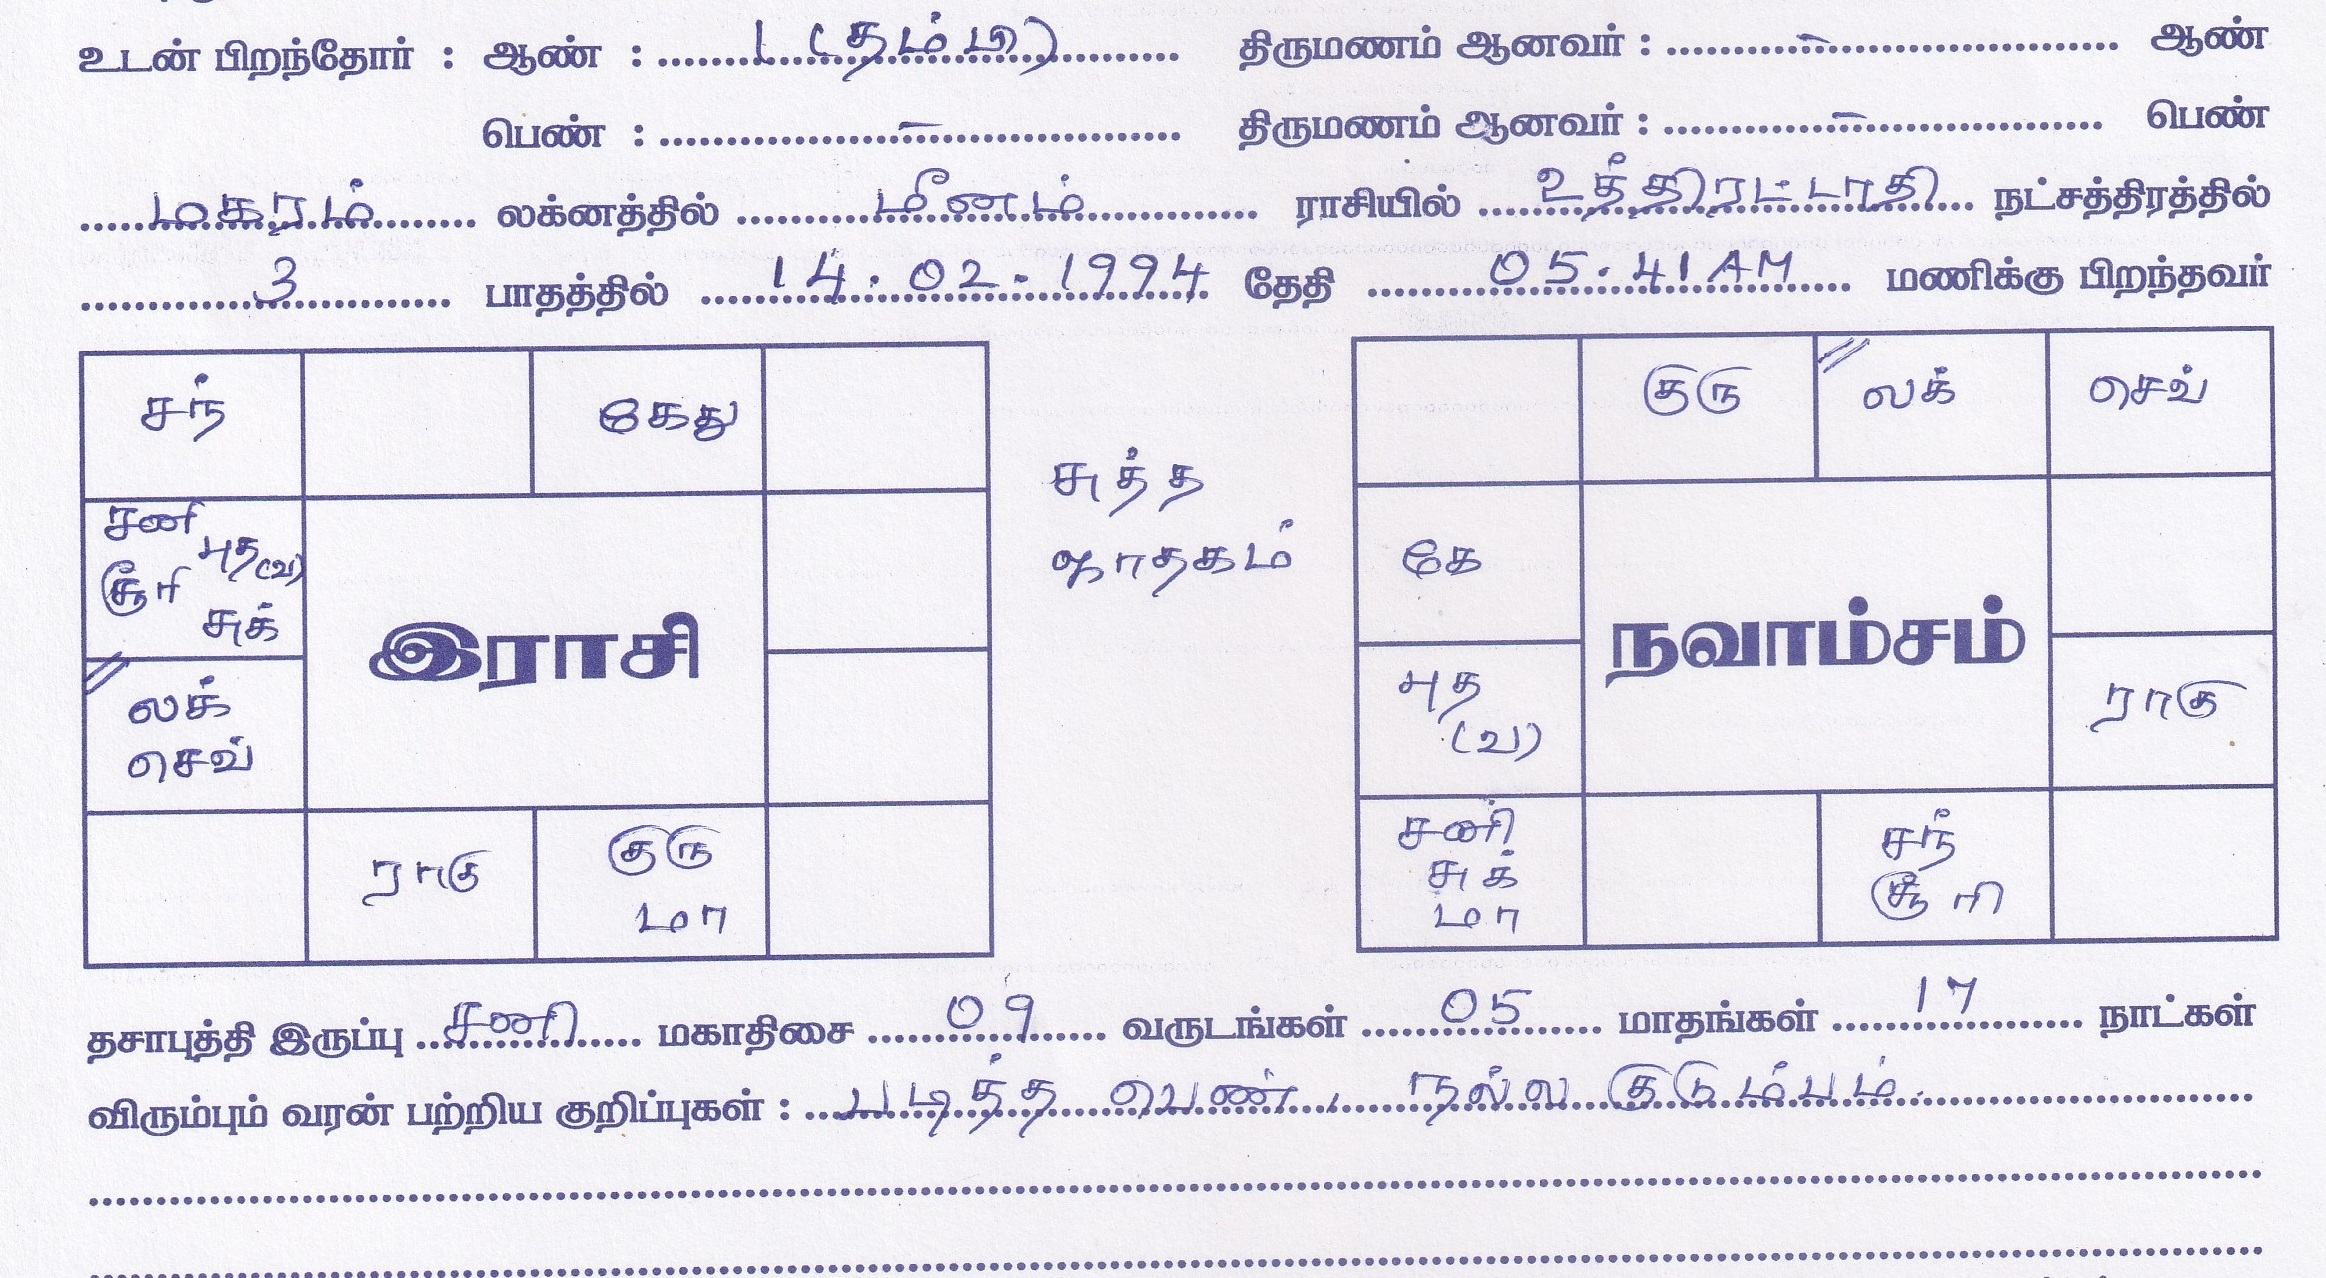 உடன் பிறந்தோர் : ஆண் : 1 (தம்பி) திருமணம் ஆனவர் : – ஆண்
பெண் : – திருமணம் ஆனவர் : – பெண்
மகரம் லக்னத்தில் மீனம் ராசியில் உத்திரட்டாதி நட்சத்திரத்தில்
3 பாதத்தில் 14.02.1994 தேதி 05.41 AM மணிக்கு பிறந்தவர்
சந் கேது
சனி புத(வ)
சூரி சுக்
லக்
செவ்
இராசி
ராகு குரு
மா
சுத்த
ஜாதகம்
குரு லக் செவ்
கே
புத
(வ)
நவாம்சம்
ராகு
சனி
சுக்
மா
சந்
சூரி
தசாபுத்தி இருப்பு சனி மகாதிசை 09 வருடங்கள் 05 மாதங்கள் 17 நாட்கள்
விரும்பும் வரன் பற்றிய குறிப்புகள் : படித்த பெண், நல்ல குடும்பம்.